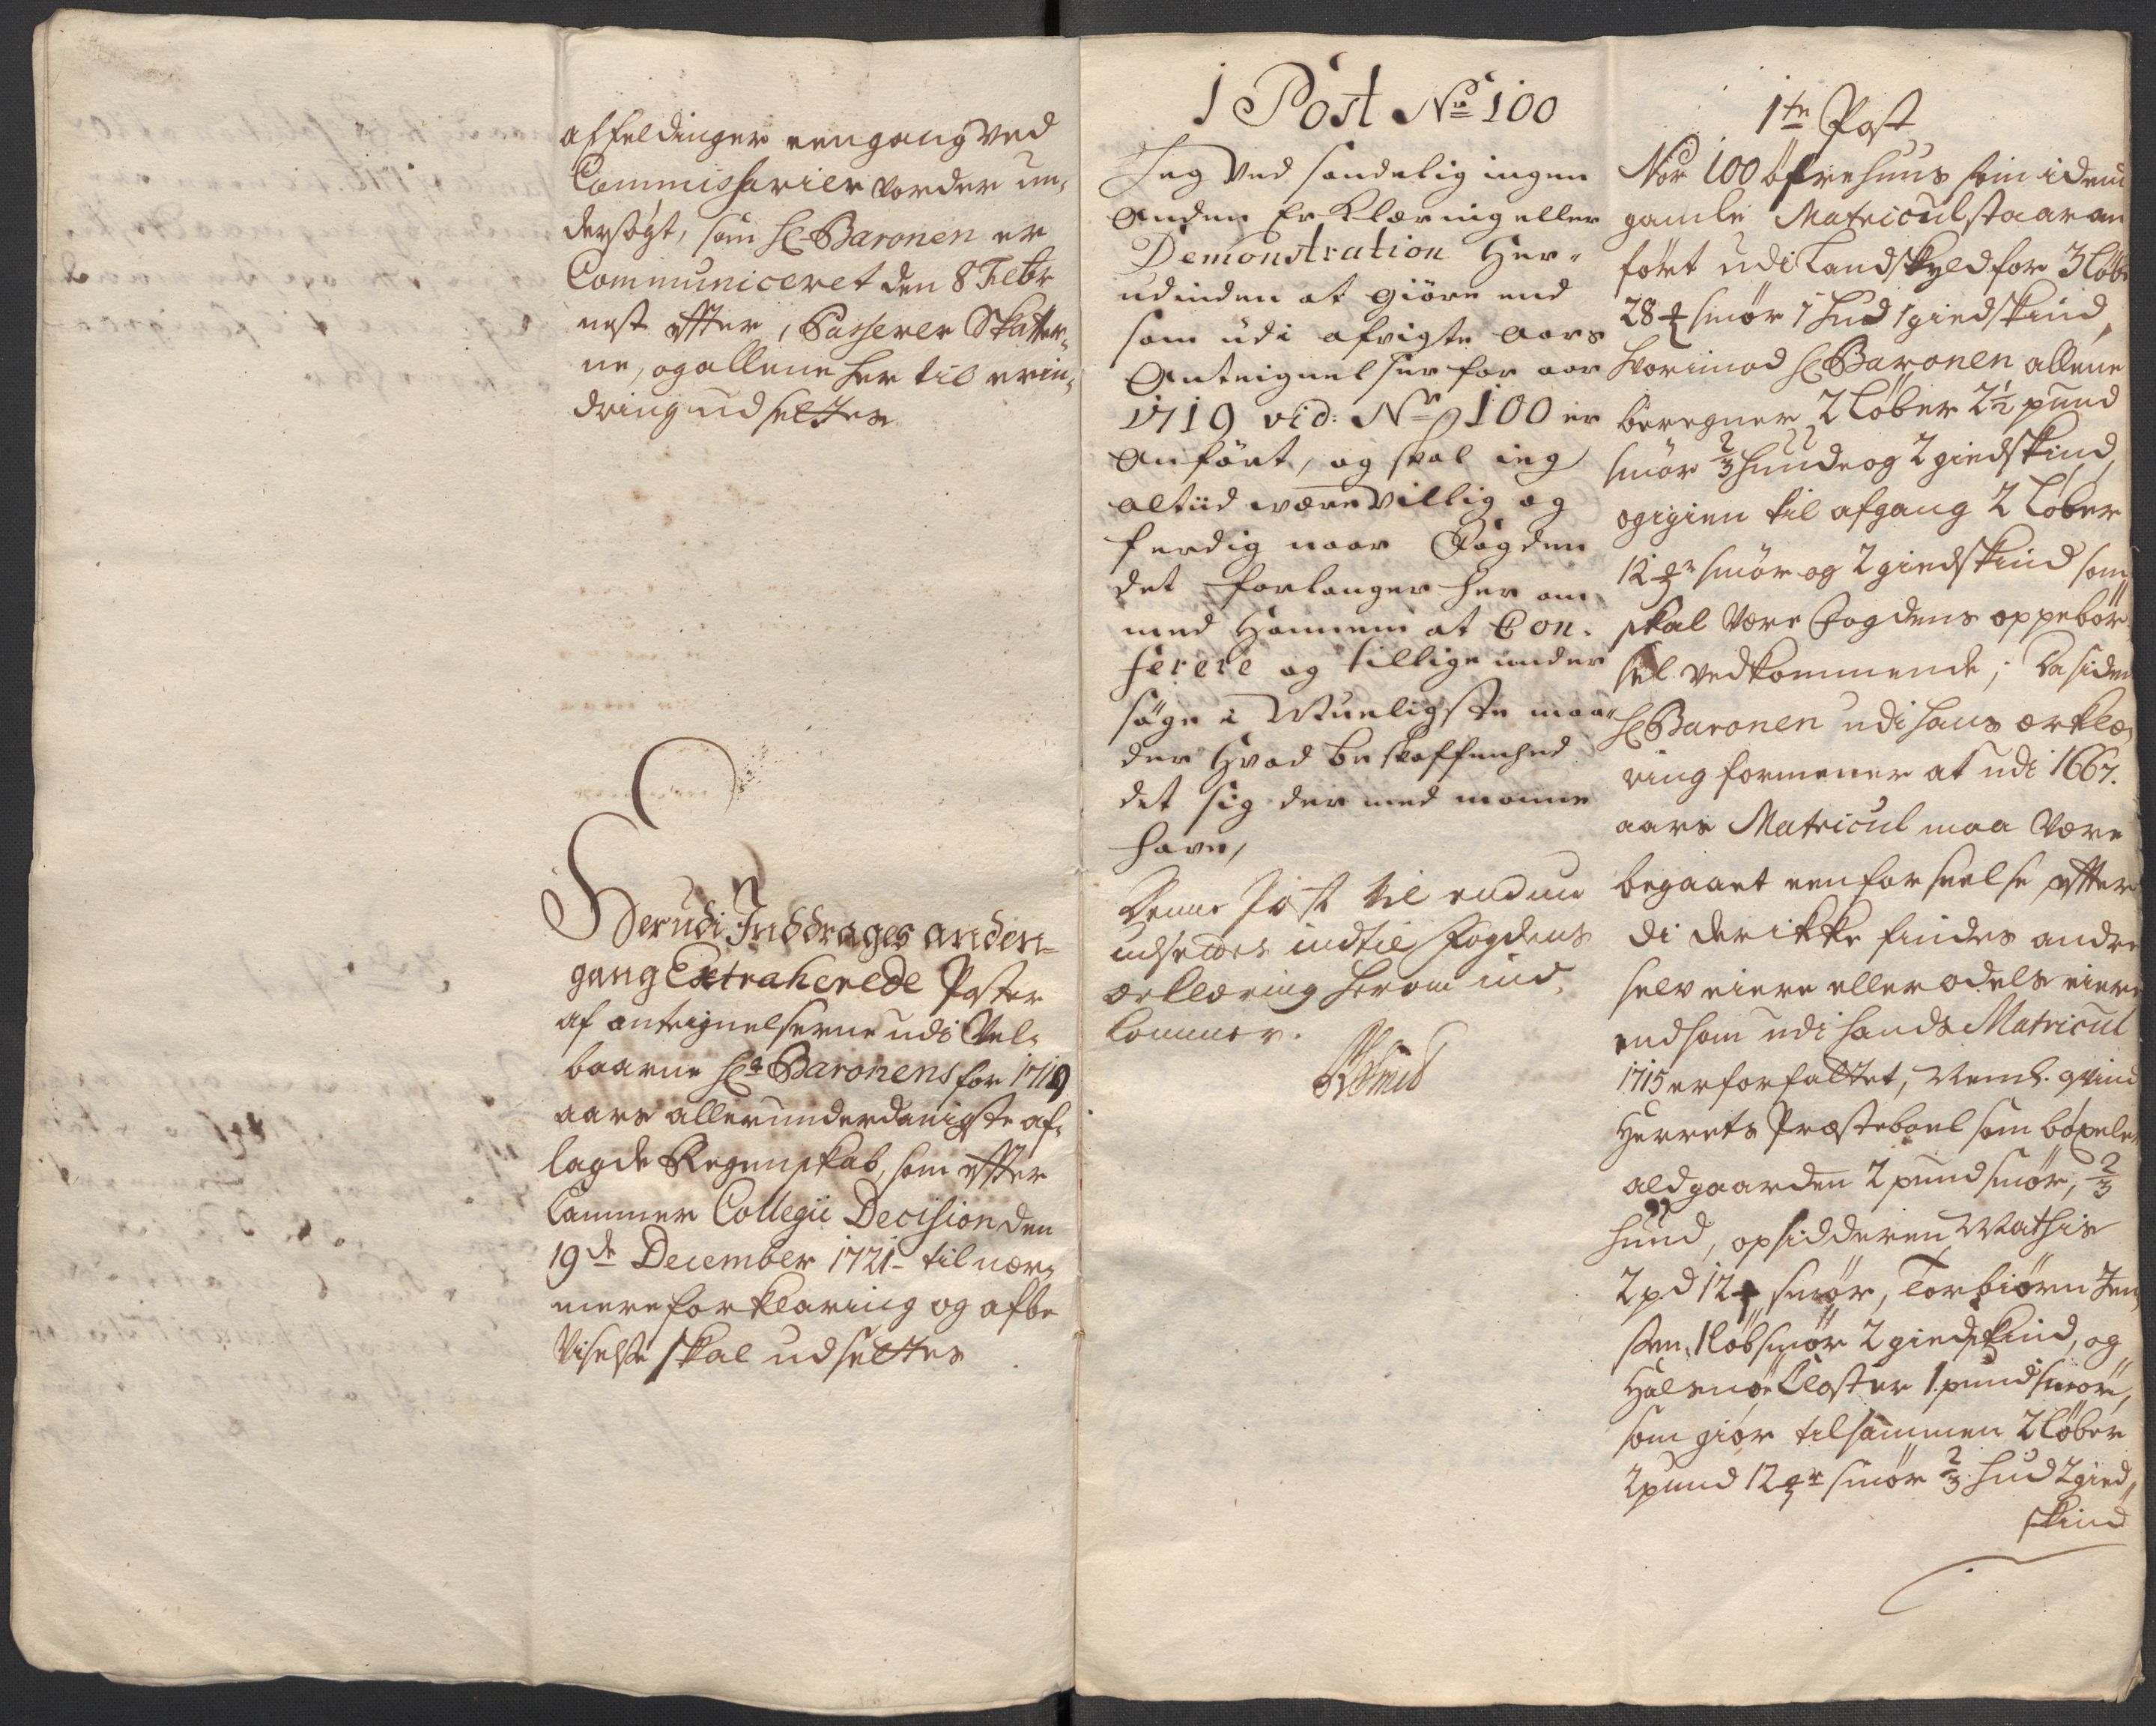 affeldinger eengang ved
Commissarier vorder un¬
dersøgt, som H. Baronen er
Communiceret den 8 Febr
nest effter, Passerer Skatter¬
ne, og allene her til erin¬
dring udsettes
Herudi Inddrages anden¬
gang Extraherede Poster
af anteignelserne udi Vel¬
baarne Hr Baronens for 1719
aars allerunderdanigste af¬
lagde Regenskab, som effter
Cammer Collegii Decision den
19de December 1721 - til nær¬
mere forklaring og afbe
viselse skal udsettes
1 Post No 100
Jeg Ved sandelig ingen
Anden Erklæring eller
Demonstration Her¬
udinden at giøre end
som udi afvigte Aars
Anteignelser for aar
1719 vid: No 100 er
Anført, og skal ieg
altiid være villig og
ferdig naar Fogden
det forlanger her om
med Hannem at Con¬
ferere og tillige under
søge i Mueligste maa¬
der Hvad beskaffenhed
det sig der med monne
have,
Denne Post vil endnu
udsettes indtil Fogdens
erklæring herom ind¬
kommer.
1te Post
Nor 100 öfrehuus som i den
gamle Matricul staar an
ført udi Landskyld for 3 Løb
28 ℔ smør 1 Hud 1 giedskind,
hvorimod H Baronen allene
beregner 2 Løber 2½ pund
smør ⅔ huude og 2 giedskind,
og igien til afgang 2 Løber
12 ℔r smør og 2 giedskind som
skal være Fogdens oppebør¬
sel vedkommende; Da siden
H Baronen udi hans erklæ¬
ring formener at udi 1667.
aars Matricul maa være
begaaet een forseelse, effter
di der ikke findes andre
selv eiere eller odels eiere
end som udi hands Matricul
1715 er forfattet, Neml. qvind
Herrets Præsteboel som böxeler
ald gaarden 2 pund smør, ⅔
huud, opsidderen Mathis
2 pd 12 ℔ smør, Torbiørn Jen¬
sen, 1 løb smør 2 giedskind, og
Halsnøe Closter 1 pund smør,
som giør tilsammen 2 løber
2 pund 12 ℔r smør ⅔ hud 2 gied¬
skind